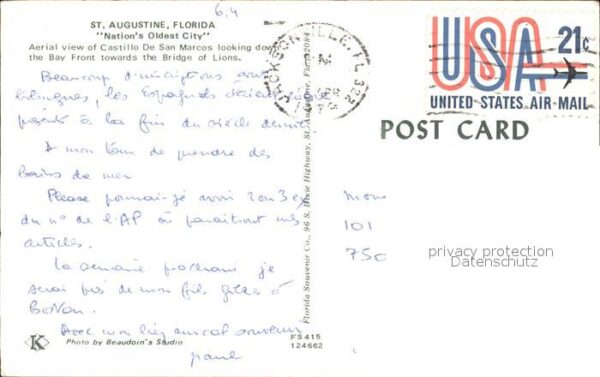 6.4
ST. AUGUSTINE, FLORIDA
"Nation's Oldest City"
Aerial view of Castillo De San Marcos looking down
the Bay Front towards the Bridge of Lions.
Beaucoup d'inscriptions sont
bilingues, les Espagnols étaient
à la fin du siècle dernier
A mon tour de prendre des
bains de mer
Please pourrai-je avoir 2 ou 3 ex
du n° de l'AP où paraîtront mes
articles.
La semaine prochaine je
serai près de mon fils Gilles à
Boston.
Avec mon bien amical souvenir
paul
K
Photo by Beaudoin's Studio
FS415
124662
Florida Souvenir Co., 96 S. Dixie Highway, St. Augustine, Fla. 32084
JACKSONVILLE, FL 322
USA 21c
UNITED STATES AIR-MAIL
POST CARD
101
750
privacy protection
Datenschutz